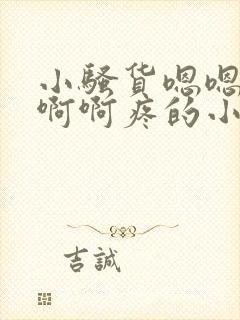 小骚货嗯嗯
啊啊疼的小
吉誠